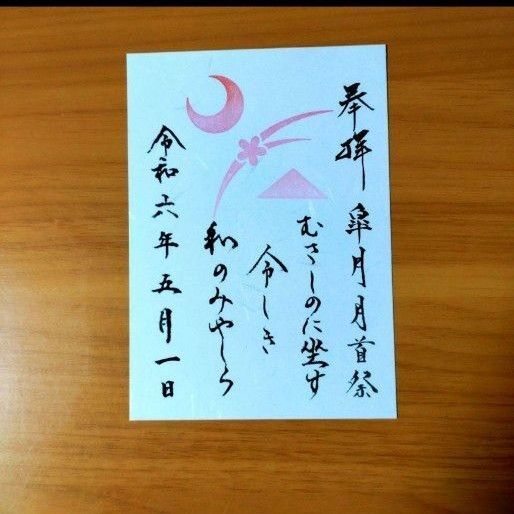 奉拝 皐月月首祭
むさしのに坐す
令しき
和のみやしろ
令和六年五月一日